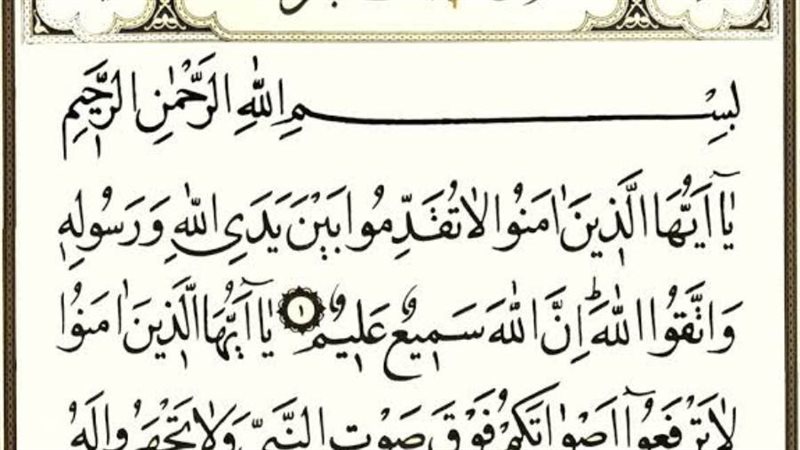 بِسْمِ اللّٰهِ الرَّحْمٰنِ الرَّحٖيمِ
يَٓا اَيُّهَا الَّذٖينَ اٰمَنُوا لَا تُقَدِّمُوا بَيْنَ يَدَىِ اللّٰهِ وَرَسُولِهٖ
وَاتَّقُوا اللّٰهَؕ اِنَّ اللّٰهَ سَمٖيعٌ عَلٖيمٌ ﴿١﴾ يَٓا اَيُّهَا الَّذٖينَ اٰمَنُوا
لَا تَرْفَعُٓوا اَصْوَاتَكُمْ فَوْقَ صَوْتِ النَّبِىِّ وَلَا تَجْهَرُوا لَهُ